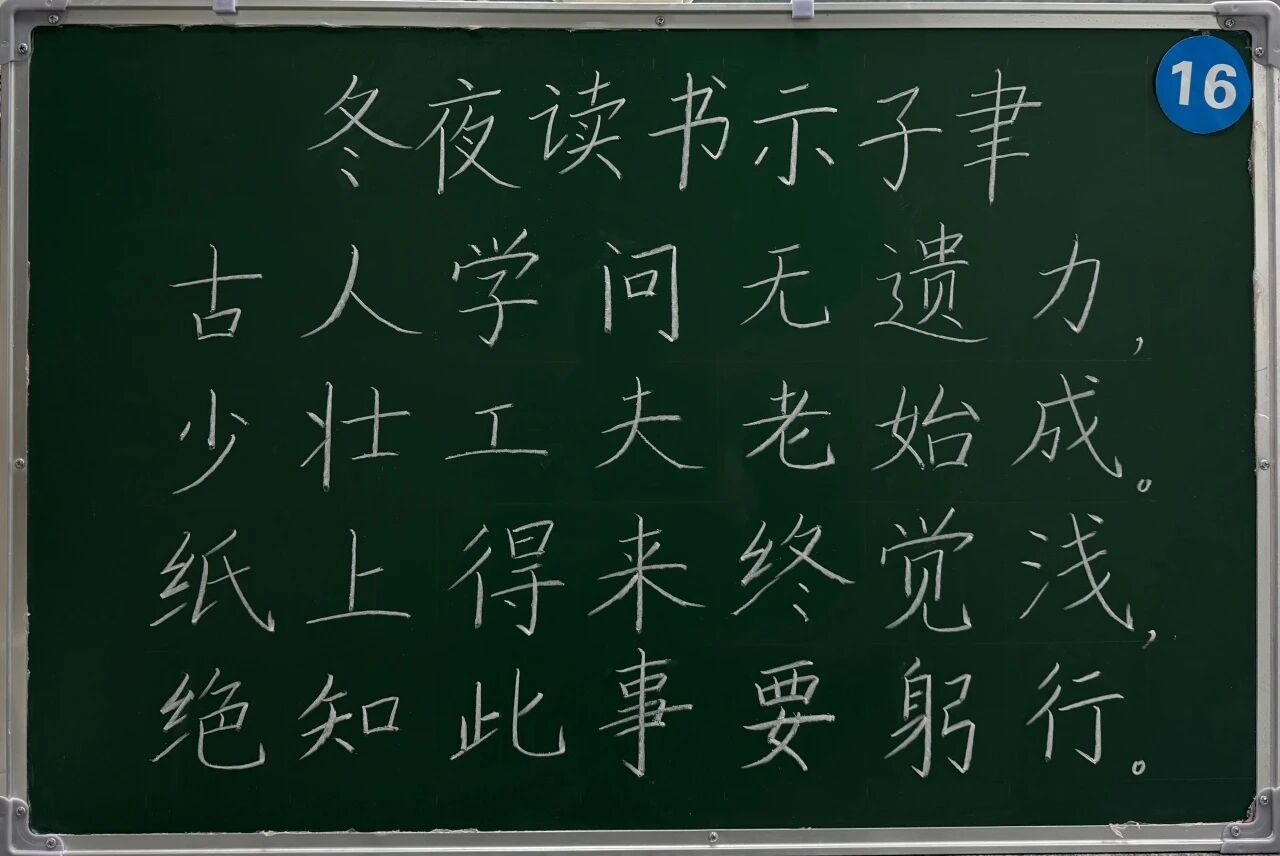 16
冬夜读书示子聿
古人学问无遗力，
少壮工夫老始成。
纸上得来终觉浅，
绝知此事要躬行。